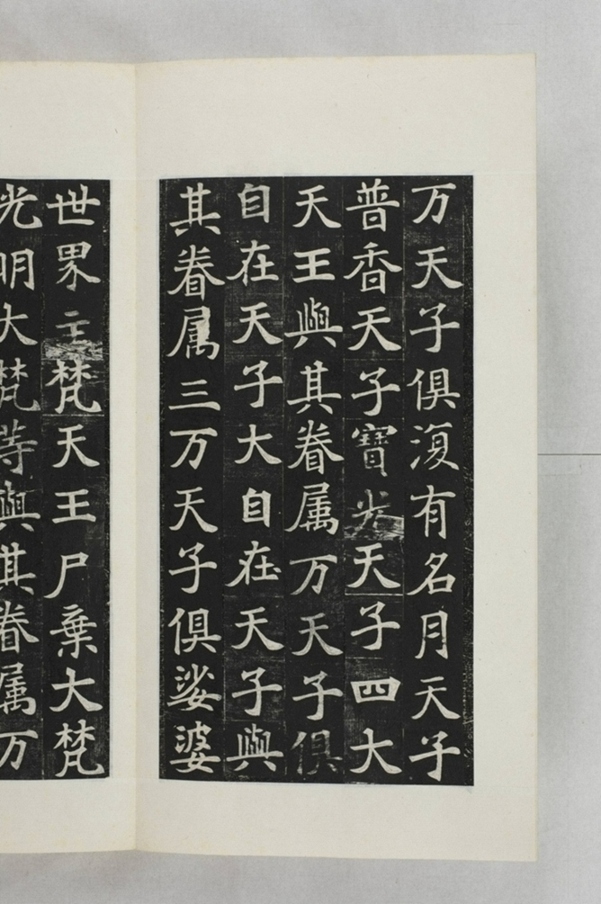 万天子俱復有名月天子
普香天子寶光天子四大
天王與其眷属万天子俱
自在天子大自在天子與
其眷属三万天子俱娑婆
世界主梵天王尸棄大梵
光明大梵等與其眷属万